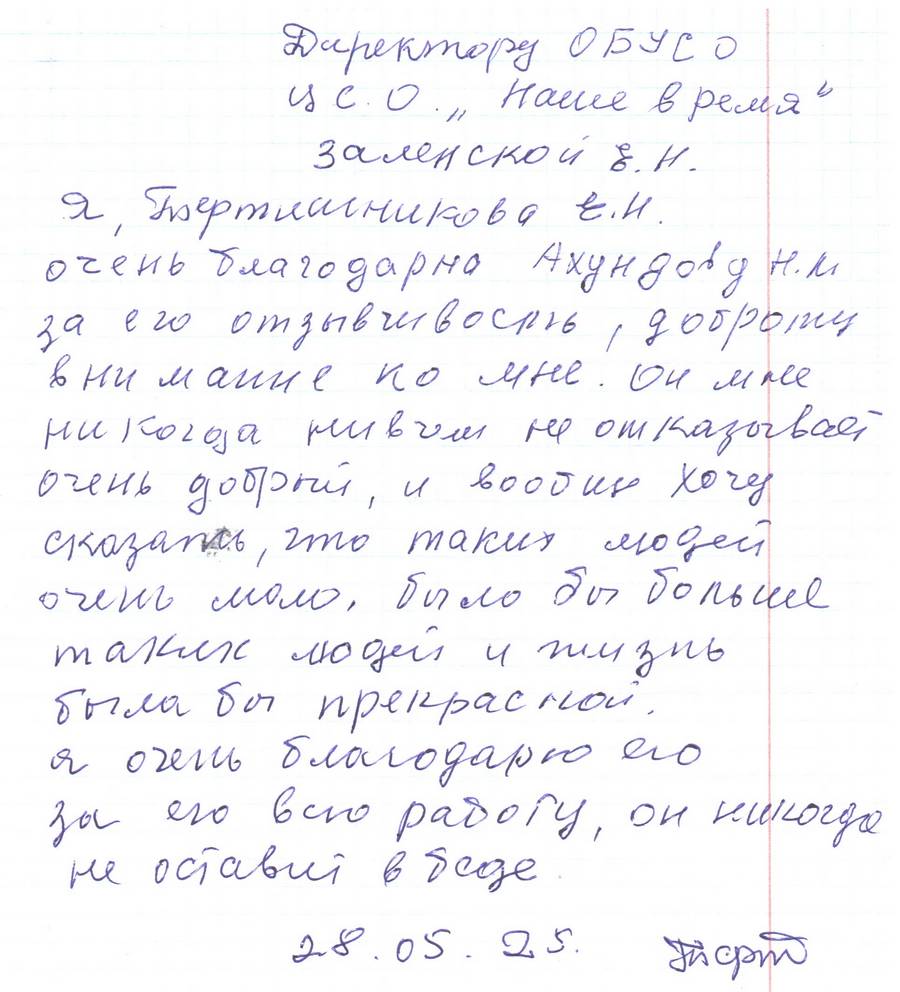 Директору ОБУСО
ЦС.О. „Наше время"
Заленской Е.Н.
Я, Тертишникова Е.Н.
очень благодарна Ахундову Н.М
за его отзывчивость, доброту
внимание ко мне. Он мне
никогда нивчем не отказывает
очень добрый, и вообще хочу
сказать, что таких людей
очень мало. было бы больше
таких людей и жизнь
была бы прекрасной.
я очень благодарю его
за его всю работу, он никогда
не оставит в беде.
28.05.25. Терт